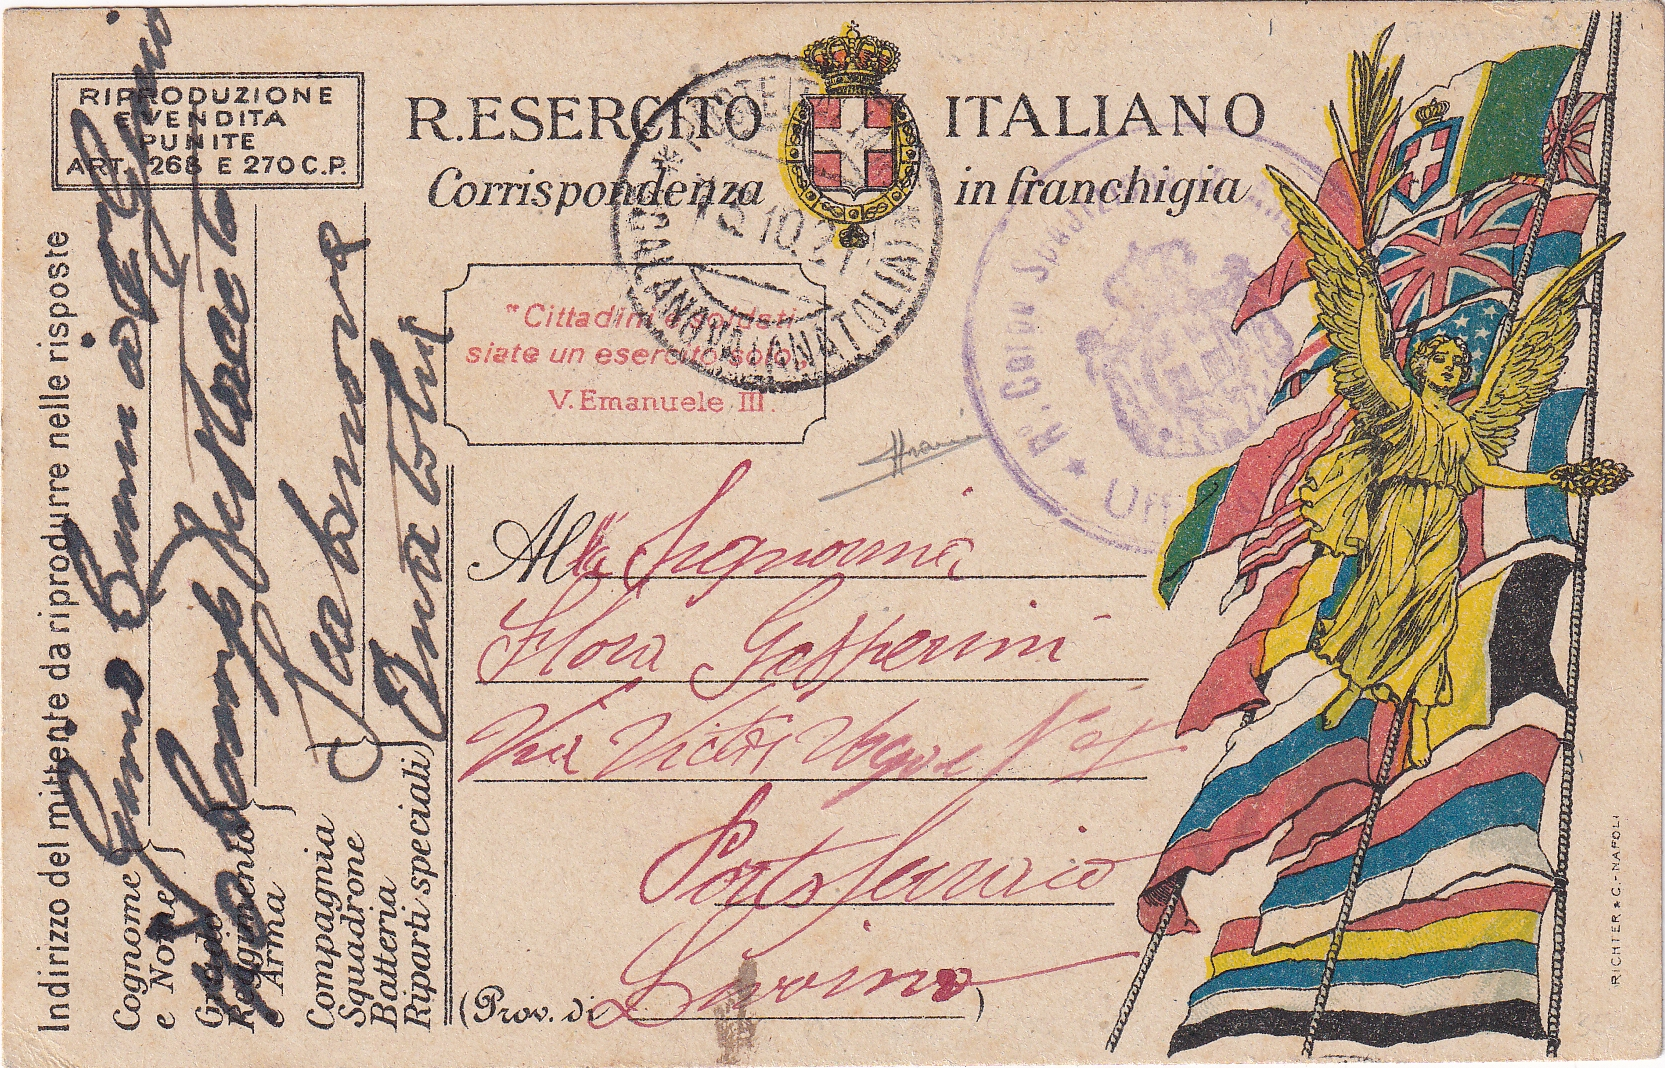 RIPRODUZIONE
E VENDITA
PUNITE
ART. 268 E 270 C.P.
R. ESERCITO ITALIANO
Corrispondenza in franchigia
"Cittadini e soldati
siate un esercito solo"
V. Emanuele III.
15.10.21
SCALANOVA (ANATOLIA)
Alla Signorina
Flora Gasperini
Via Victor Hugo N°
Portoferraio
(Prov. di Livorno)
Indirizzo del mittente da riprodurre nelle risposte
Cognome
e Nome
Grado
Reggimento
e Arma
Compagnia
Squadrone
Batteria
Riparti speciali
Scalanova
Anatolia
RICHTER & C. - NAPOLI